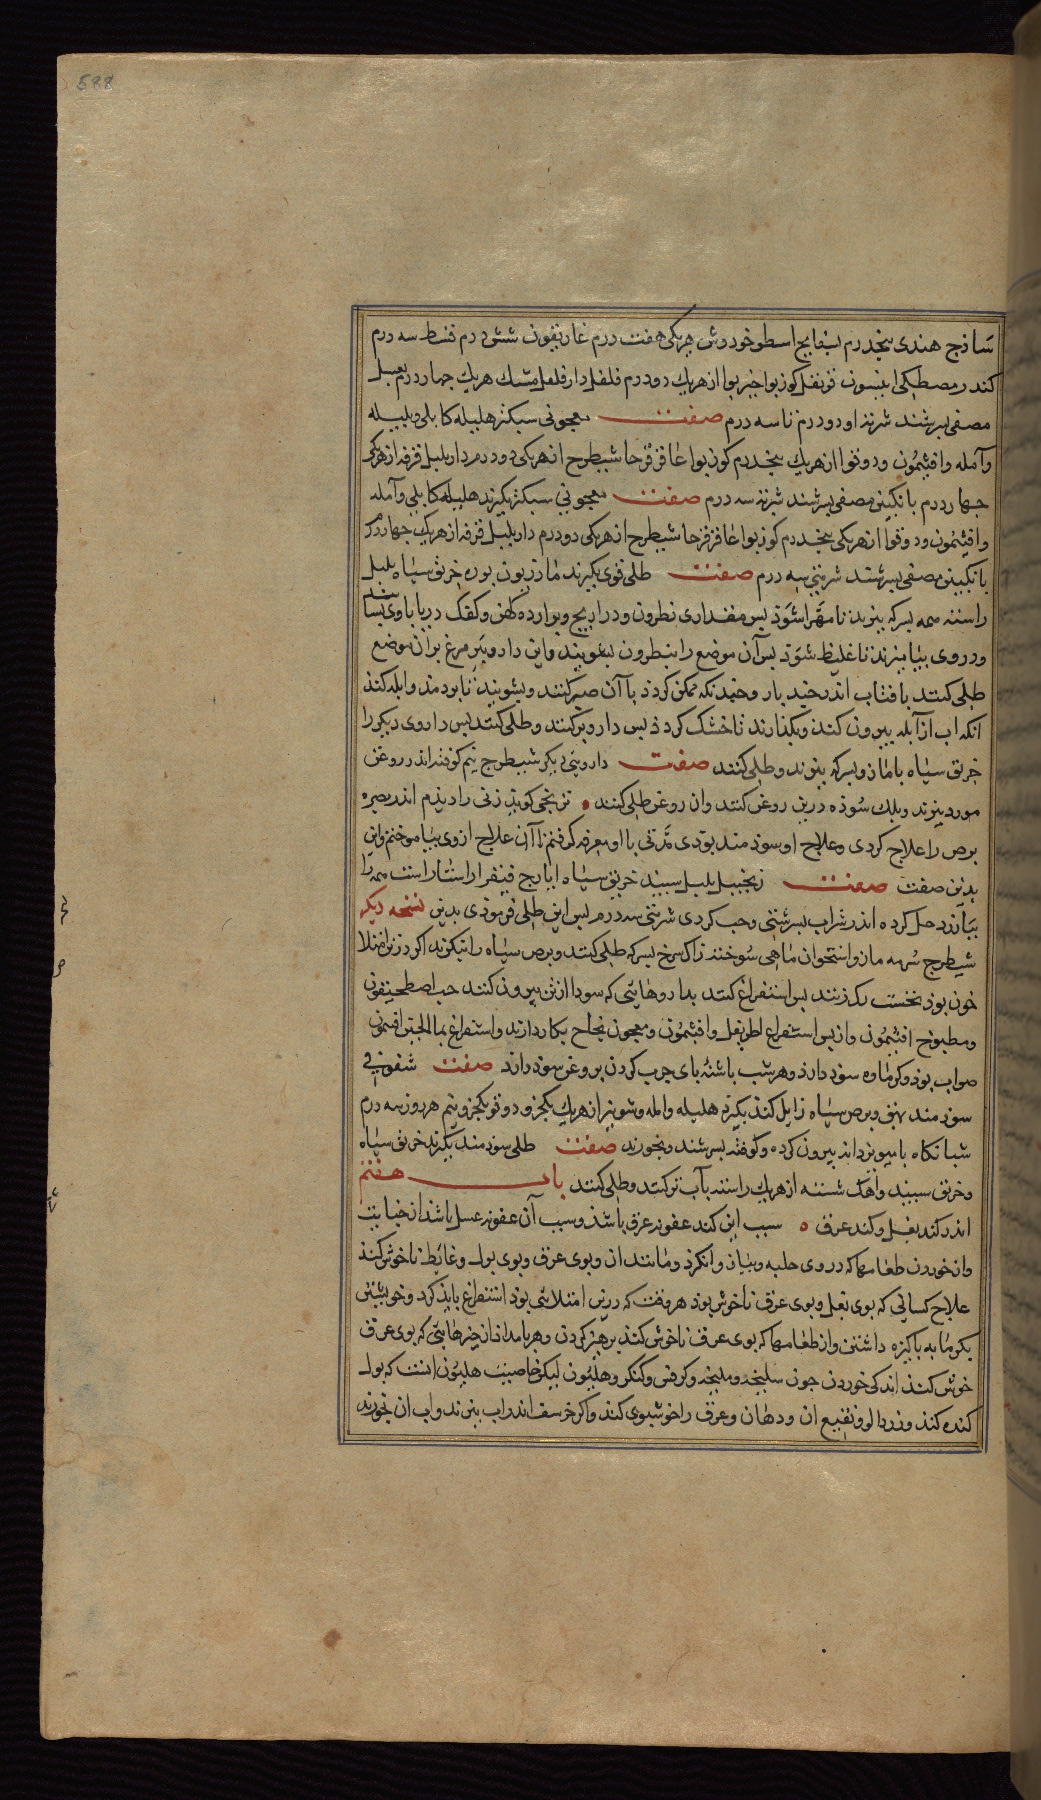 588
ساذج هندی پنجدرم بسفایج اسطوخودوش هریکی هفت درم غاریقون شش درم قسط سه درم
کندر مصطکی انیسون قرنفل کوزبوا خیربوا از هریک دو درم فلفل دارفلفل مشک هریک چهار درم بعسل
مصفی بسرشند شربت او دو درم تا سه درم صفت معجونی سبکتر هلیله کابلی و بلیله
و آمله و افتیمون و دوقوا از هریک پنجدرم کوزبوا عاقرقرحا شیطرج از هریکی دو درم داربلبل قرفه از هریکی
چهار درم بانکبین مصفی بسرشند شربت سه درم صفت معجونی سبکتر بکیرند هلیله کابلی و آمله
و افتیمون و دوقوا از هریکی پنجدرم کوزبوا عاقرقرحا شیطرج از هریکی دو درم داربلبل قرفه از هریک چهار درم
بانکبین مصفی بسرشند شربتی سه درم صفت طلی قوی بکیرند مازریون بوره خربق سیاه بلبل
راستد همه بسرکه بپزند تا مهرا شوذ پس مقداری نطرون و دراریح و برارده کهن و کفک دریا باوی بسایند
و در وی بپزند تا غلیظ شوذ پس آن موضع را بنطرون بشویند و این دارو بپر مرغ بران موضع
طلی کنند بافتاب اندر چند بار و چندانکه ممکن کردذ با آن صبر کنند و بشویند تا بودمذ و ابله کند
انکه اب از آبله بیرون کنند و بکذارند تا خشک کردذ پس دارو بر کنند و طلی کنند پس داروی دیکر را
خربق سیاه با مازو بسرکه بپزند و طلی کنند صفت داروئی دیکر شیطرج نیم کوفته اندر روغن
مورد بپزند و بلک سوذه درین روغن کنند وان روغن طلی کنند ترنجی کوید زنی را دیذم اندر بصره
برص را علاج کردی و علاج او سوذمند بودی مدتی با او معرفه کرفتم تا آن علاج از وی بیاموختم واین
بدین صفت صفت زنجبیل بلبل سپید خربق سیاه ایارج فیقرا راستاراست همه را
بیارزد حل کرده اندر شراب بسرشتی و حب کردی شربتی سه درم پس این طلی فرموذی بدین نسخه دیکر
شیطرج سرمه مازو استخوان ماهی سوخته زاک سرخ بسرکه طلی کنند و برص سیاه را نیکوند اکر در تن امتلا
خون بود نخست رک زنند پس استفراغ کنند بداروهایی که سودا از تن بیرون کنند حب اصطمخیقون
و مطبوخ افتیمون واز پس استفراغ اطریفل و افتیمون و معجون نجاح بکار دارند و استفراغ بماالجبن افیمونی
صواب بوذ و کرماوه سوذ دارد و هر شب باشنه بای چرب کردن بروغن سوذ دارد صفت شفوفی
سوذمند بهق و برص سیاه زایل کند بکیرند هلیله وامله و شونیز از هریک یکجزو دوقو یکجزو نیم هر روز سه درم
شبانکاه با میویز دانه بیرون کرده و کوفته بسرشند و بخورند صفت طلی سوذمند بکیرند خربق سیاه
و خربق سپید واهک شسته از هریک راستد بآب ترکنند و طلی کنند باب هفتم
اندر کند بغل و کند عرق ه سبب این کند عفونه عرق باشذ و سبب آن عفونه عسل باشد از جنابت
وان خوردن طعامها که در وی حلبه و بیاز و انکرد و مانند ان و بوی عرق و بوی بول و غائط ناخوش کند
علاج کسانی که بوی بغل و بوی عرق ناخوش بود هر وقت که در تن امتلائی بوذ استفراغ بایذ کرد و خویشتن
بکرمابه باکیزه داشتن واز طعامها که بوی عرق ناخوش کند برهیز کردن و هر بامداد از چیزهایی که بوی عرق
خوش کند اندکی خوردن چون سلیخه و میلیخه و کرفس و کنکر و هلیون لیکن خاصیت هلیون انست که بول
کنده کند و زردالو و نقیع ان و دهان و عرق را خوشبوی کند واکر خرسف اندر اب بپزند واب ان بخورند